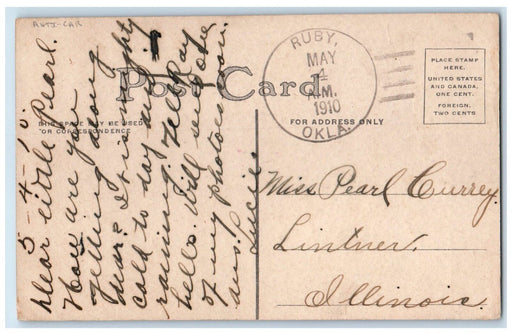 AUTO-CAR
Post Card
THIS SPACE MAY BE USED
FOR CORRESPONDENCE
FOR ADDRESS ONLY
PLACE STAMP
HERE.
UNITED STATES
AND CANADA,
ONE CENT.
FOREIGN,
TWO CENTS
RUBY,
MAY
4
A.M.
1910
OKLA.
5-4-10
Dear little Pearl.
How are you
getting along
dear? It is mighty
cold to day and
raining. Tell Ray
hello. Will send one
of my photos soon.
ans. Lucile
Miss Pearl Currey.
Lintner.
Illinois.